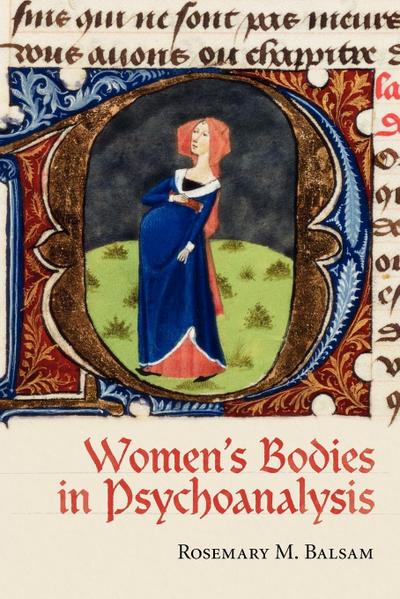 sins qui ne sont pas
nous auons ou chappitre
la
Women's Bodies
in Psychoanalysis
Rosemary M. Balsam